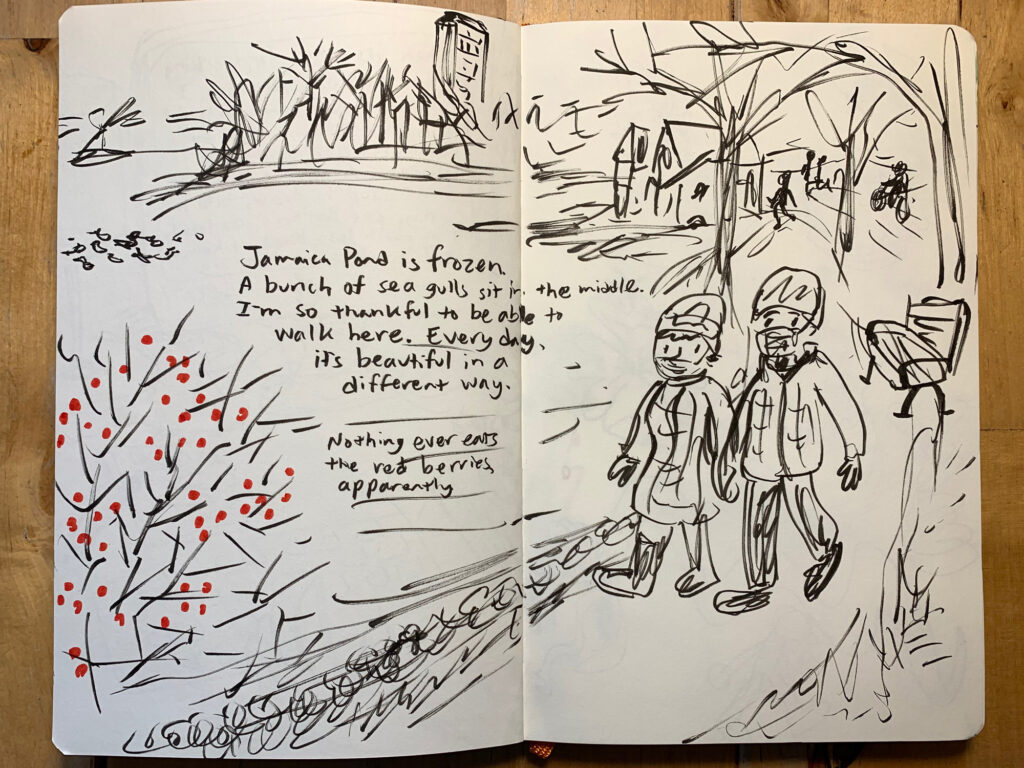 Jamaica Pond is frozen.
A bunch of sea gulls sit in the middle.
I'm so thankful to be able to
walk here. Every day,
it's beautiful in a
different way.
Nothing ever eats
the red berries,
apparently